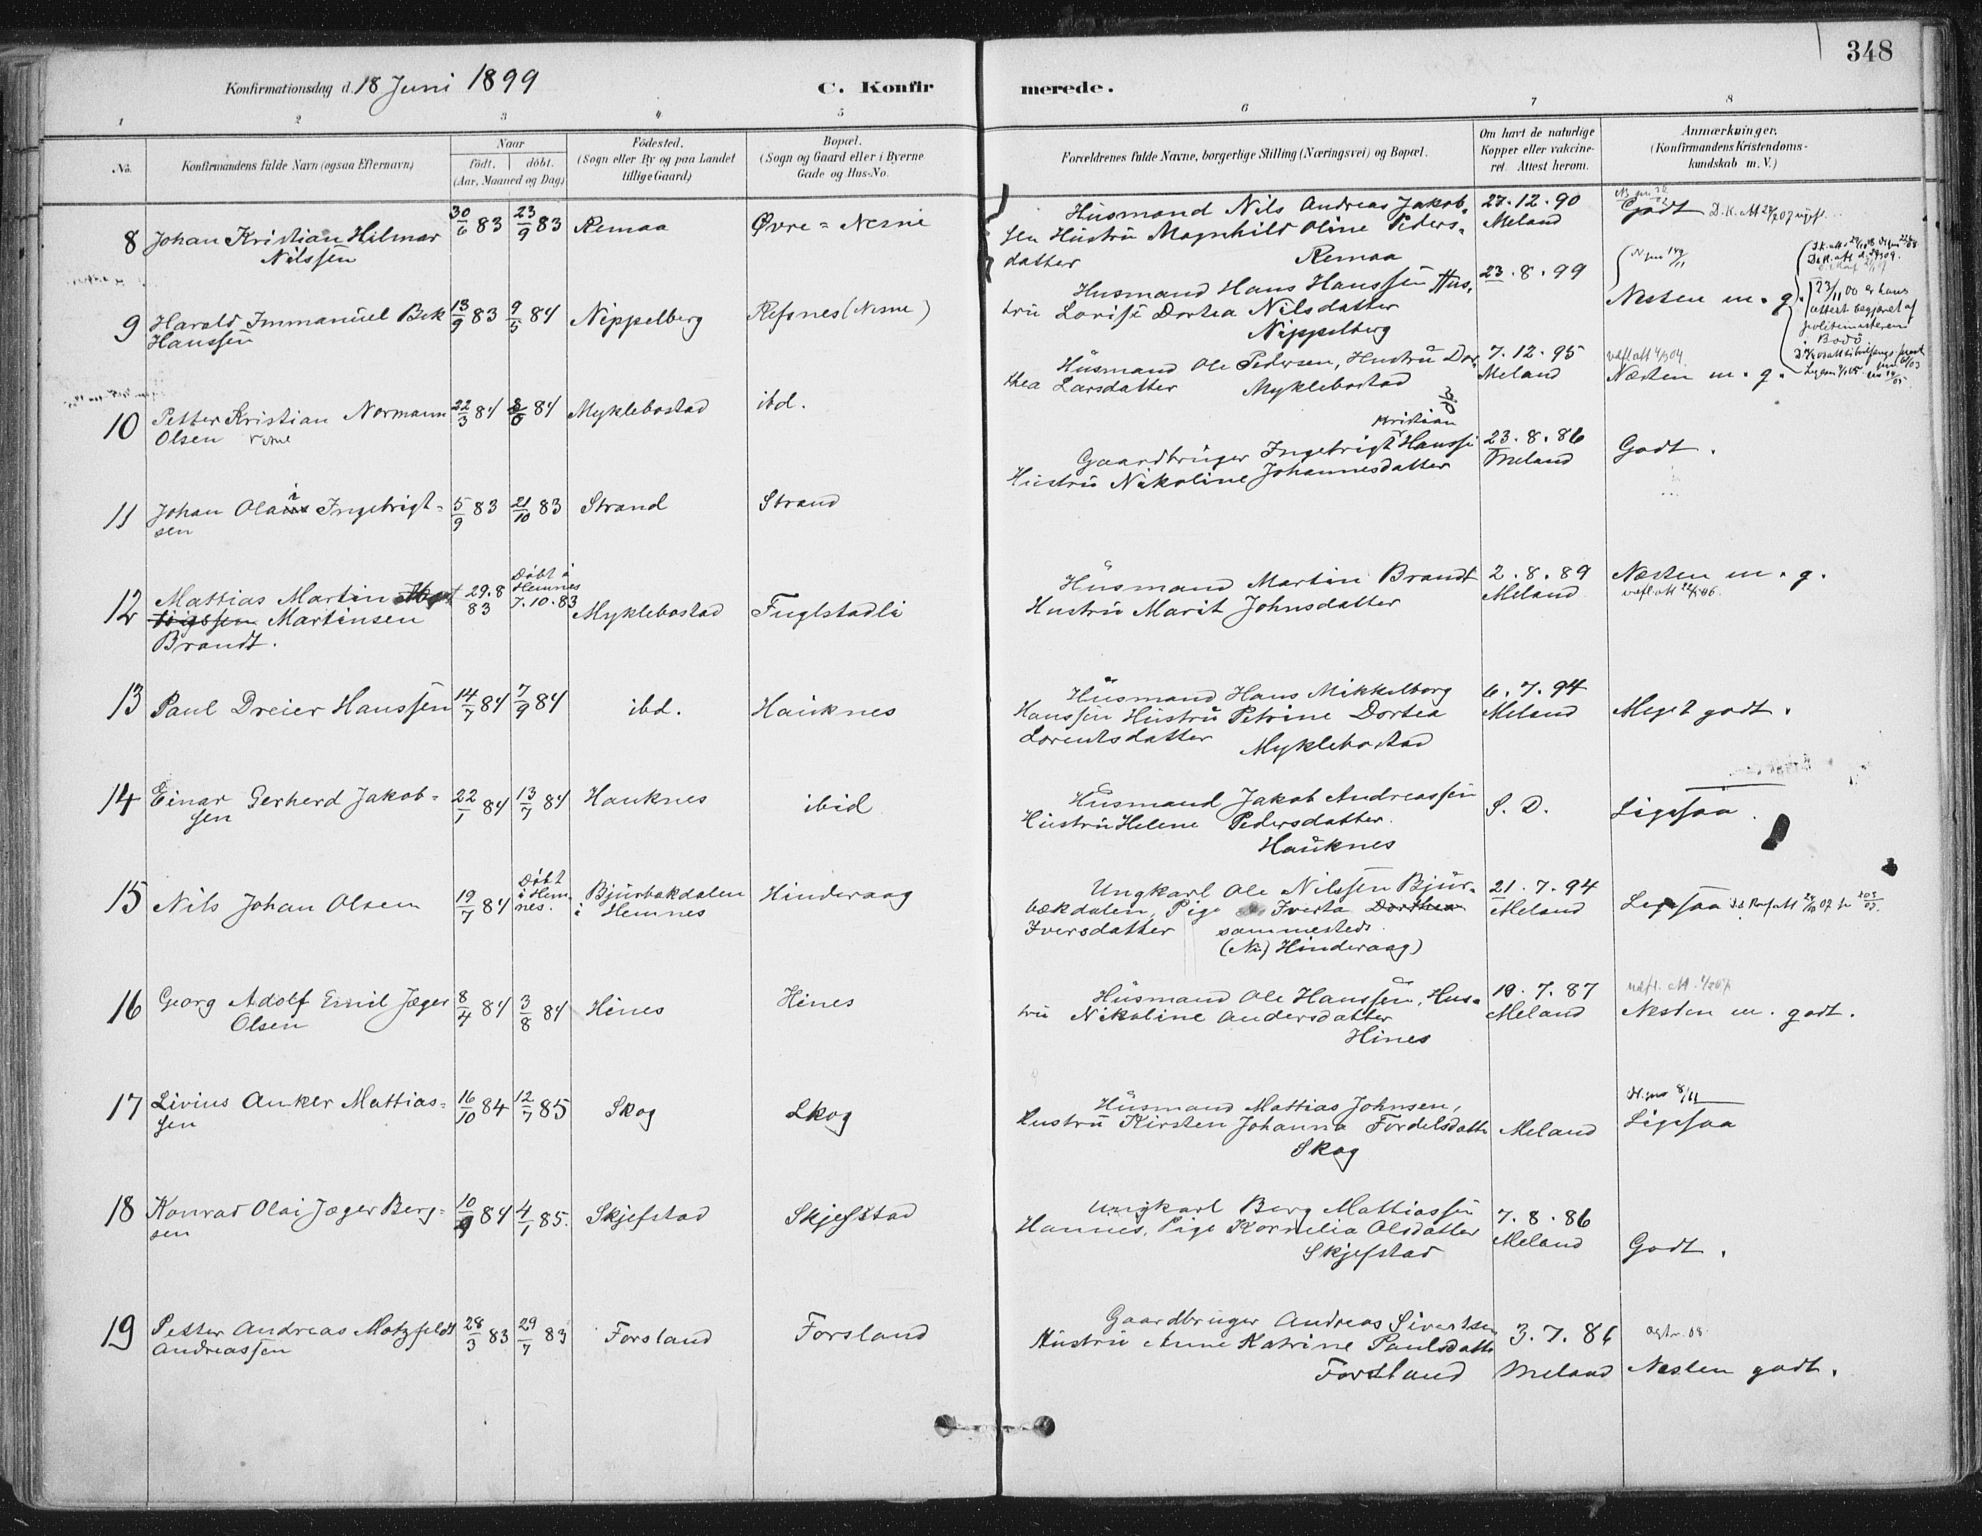 348
Konfirmationsdag d. 18 Juni 1899
C. Konfirmerede.
1 2 3 4 5 6 7 8
No.
Konfirmandens fulde Navn (ogsaa Efternavn)
Naar
födt. döbt.
(Aar, Maaned og Dag)
Födested.
(Sogn eller By og paa Landet
tillige Gaard)
Bopæl.
(Sogn og Gaard eller i Byerne
Gade og Hus-No.
Forældrenes fulde Navne, borgerlige Stilling (Næringsvei) og Bopæl.
Om havt de naturlige
Kopper eller vakcine-
ret. Attest herom.
Anmærkninger.
(Konfirmandens Kristendoms-
kundskab m. V.)
8 Johan Kristian Hilmar
Nilssen
30/6 83 23/9 83 Remaa Øvre = Nesne
Husmand Nils Andreas Jakob-
sen Hustru Magnhild Oline Peders-
datter Remaa
27.12.90
Meland
Godt
9 Harald Immanuel Bek
Hanssen
13/9 83 9/5 84 Nippelberg Refsnes (Nesne)
Husmand Hans Hanssen Hus-
tru Lovise Dortea Nilsdatter
Nippelberg
23.8.99
Nesten m. g.
23/11 00 er hans
attest begjæret af
politimesteren
i Bodö
10 Petter Kristian Normann
Olsen
22/3 84 84 Myklebostad ibd.
Husmand Ole Pedersen, Hustru Dor-
thea Larsdatter Myklebostad
7.12.95
Meland
Næsten m. g.
11 Johan Olai Ingebrigt-
sen
5/9 83 21/10 83 Strand Strand
Kristian
Gaardbruger Ingebrigt Hanssen
Hustru Nikoline Johannesdatter
23.8.86
Meland
Godt.
12 Mattias Martin
Martinsen
Brandt.
29.8
83
Döbt i
Hemnes
7.10.83
Myklebostad Fuglstadli
Husmand Martin Brandt
Hustru Marit Johnsdatter
2.8.89
Meland
Næsten m. g.
13 Paul Dreier Hanssen 14/7 84 7/9 84 ibd. Hauknes
Husmand Hans Mikkelborg
Hanssen Hustru Petrine Dortea
Lorentsdatter Myklebostad
6.7.94
Meland
Meget godt.
14 Einar Gerherd Jakob-
sen
22/1 84 13/7 84 Hauknes ibid
Husmand Jakob Andreassen
Hustru Helene Pedersdatter.
Hauknes
S. D.
Ligesaa.
15 Nils Johan Olsen 19/7 84
Döbt
i Hem-
nes.
Bjurbækdalen
i Hemnes
Hinderaag
Ungkarl Ole Nilssen Bjur-
bækdalen, Pige Iverta Dorthea
Iversdatter sammesteds.
(Nu Hinderaag)
21.7.94
Meland
Ligesaa
16 Georg Adolf Emil Jæger
Olsen
8/4 84 3/8 84 Hines Hines
Husmand Ole Hanssen, Hus-
tru Nikoline Andersdatter
Hines
10.7.87
Meland
Nesten m. godt.
17 Livius Anker Mattias-
sen
16/10 84 12/7 85 Skog Skog
Husmand Mattias Johnsen,
Hustru Kirsten Johanna Fordelsdatt
Skog
Meland
Ligesaa
18 Konrad Olai Jæger Berg-
sen
10/9 84 4/1 85. Skjefstad Skjefstad
Ungkarl Berg Mattiassen
Hannes, Pige Kornelia Olsdatter
Skjefstad
7.8.86
Meland
Godt.
19 Petter Andreas Motzfeldt
Andreassen
28/3 83 29/7 83 Forsland Forsland
Gaardbruger Andreas Sivertsen
Hustru Anne Katrine Paulsdatt
Forsland
3.7.86
Meland
Nesten godt.